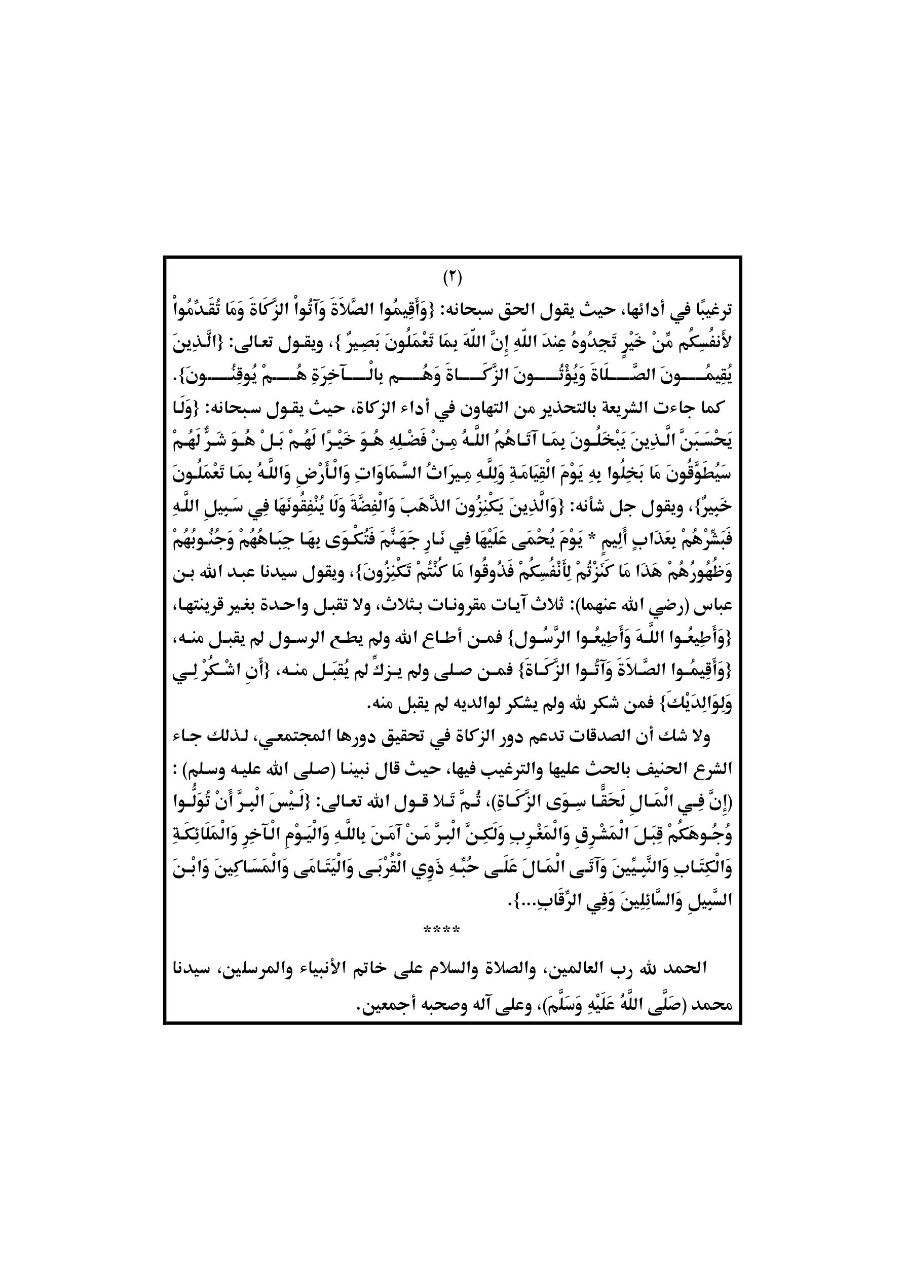 (٢)
ترغيبًا في أدائها، حيث يقول الحق سبحانه: {وَأَقِيمُوا الصَّلاَةَ وَآتُواْ الزَّكَاةَ وَمَا تُقَدِّمُواْ
لأَنفُسِكُم مِّنْ خَيْرٍ تَجِدُوهُ عِندَ اللّهِ إِنَّ اللّهَ بِمَا تَعْمَلُونَ بَصِيرٌ }، ويقول تعالى: {الَّذِينَ
يُقِيمُونَ الصَّلَاةَ وَيُؤْتُونَ الزَّكَاةَ وَهُم بِالْآخِرَةِ هُمْ يُوقِنُونَ}.
كما جاءت الشريعة بالتحذير من التهاون في أداء الزكاة، حيث يقول سبحانه: {وَلَا
يَحْسَبَنَّ الَّذِينَ يَبْخَلُونَ بِمَا آتَاهُمُ اللَّهُ مِنْ فَضْلِهِ هُوَ خَيْرًا لَهُمْ بَلْ هُوَ شَرٌّ لَهُمْ
سَيُطَوَّقُونَ مَا بَخِلُوا بِهِ يَوْمَ الْقِيَامَةِ وَلِلَّهِ مِيرَاثُ السَّمَاوَاتِ وَالْأَرْضِ وَاللَّهُ بِمَا تَعْمَلُونَ
خَبِيرٌ}، ويقول جل شأنه: {وَالَّذِينَ يَكْنِزُونَ الذَّهَبَ وَالْفِضَّةَ وَلَا يُنْفِقُونَهَا فِي سَبِيلِ اللَّهِ
فَبَشِّرْهُمْ بِعَذَابٍ أَلِيمٍ * يَوْمَ يُحْمَى عَلَيْهَا فِي نَارِ جَهَنَّمَ فَتُكْوَى بِهَا جِبَاهُهُمْ وَجُنُوبُهُمْ
وَظُهُورُهُمْ هَذَا مَا كَنَزْتُمْ لِأَنْفُسِكُمْ فَذُوقُوا مَا كُنْتُمْ تَكْنِزُونَ}، ويقول سيدنا عبد الله بن
عباس (رضي الله عنهما): ثلاث آيات مقرونات بثلاث، ولا تقبل واحدة بغير قرينتها،
{وَأَطِيعُوا اللَّهَ وَأَطِيعُوا الرَّسُول} فمن أطاع الله ولم يطع الرسول لم يقبل منه،
{وَأَقِيمُوا الصَّلاَةَ وَآتُوا الزَّكَاةَ} فمن صلى ولم يزكِّ لم يُقبَل منه، {أَنِ اشْكُرْ لِي
وَلِوَالِدَيْكَ} فمن شكر لله ولم يشكر لوالديه لم يقبل منه.
ولا شك أن الصدقات تدعم دور الزكاة في تحقيق دورها المجتمعي، لذلك جاء
الشرع الحنيف بالحث عليها والترغيب فيها، حيث قال نبينا (صلى الله عليه وسلم) :
(إِنَّ فِي الْمَالِ لَحَقًّا سِوَى الزَّكَاةِ)، ثُمَّ تَلا قول الله تعالى: {لَيْسَ الْبِرَّ أَنْ تُوَلُّوا
وُجُوهَكُمْ قِبَلَ الْمَشْرِقِ وَالْمَغْرِبِ وَلَكِنَّ الْبِرَّ مَنْ آمَنَ بِاللَّهِ وَالْيَوْمِ الْآخِرِ وَالْمَلَائِكَةِ
وَالْكِتَابِ وَالنَّبِيِّينَ وَآتَى الْمَالَ عَلَى حُبِّهِ ذَوِي الْقُرْبَى وَالْيَتَامَى وَالْمَسَاكِينَ وَابْنَ
السَّبِيلِ وَالسَّائِلِينَ وَفِي الرِّقَابِ...}.
****
الحمد لله رب العالمين، والصلاة والسلام على خاتم الأنبياء والمرسلين، سيدنا
محمد (صَلَّى اللَّهُ عَلَيْهِ وَسَلَّمَ)، وعلى آله وصحبه أجمعين.